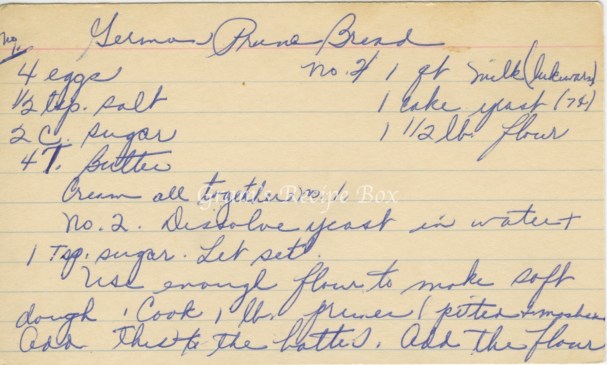 German Prune Bread
No. 1. 4 eggs No. 2 1 qt milk (lukwarm)
1/2 tsp. salt 1 cake yeast (7¢)
2 C. sugar 1 1/2 lb. flour
4 T. Butter
Cream all together no 1
Grand's Recipe Box
No. 2. Dissolve yeast in water +
1 Tsp. sugar. Let set.
Use enough flour to make soft
dough. Cook 1 lb. prunes (pitted & mashed
Add this to the batter. Add the flour